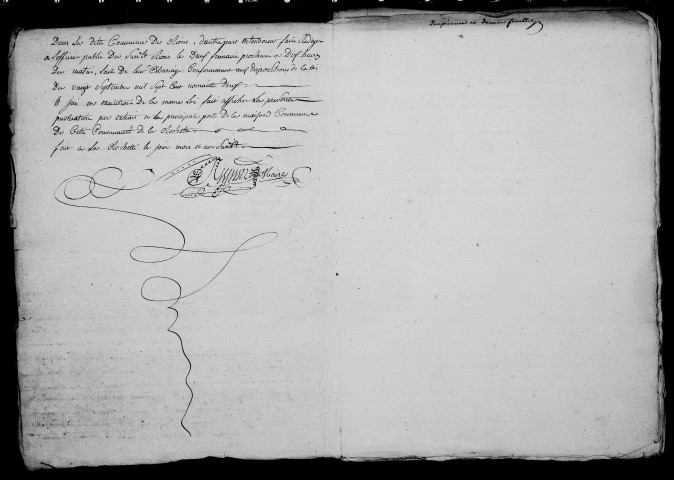 Dans La dite Commune De Rions, d'autre part entendent faire Rediger
a Loffice public De Rions le Deux frimaire prochain a Dix heures
Du matin, Lacte de leur Mariage Conformement aux dispositions de la loi
Du vingt Septembre mil Sept Cent nonante Deux
Et jai en execution de la meme Loi fait afficher La presente
publication par extrait a la principal porte de la maison Commune
De Cette Communauté de la Rochette
fait a La Rochette le jour mois et an Susdit
Maire
deuxieme et dernier feuillet